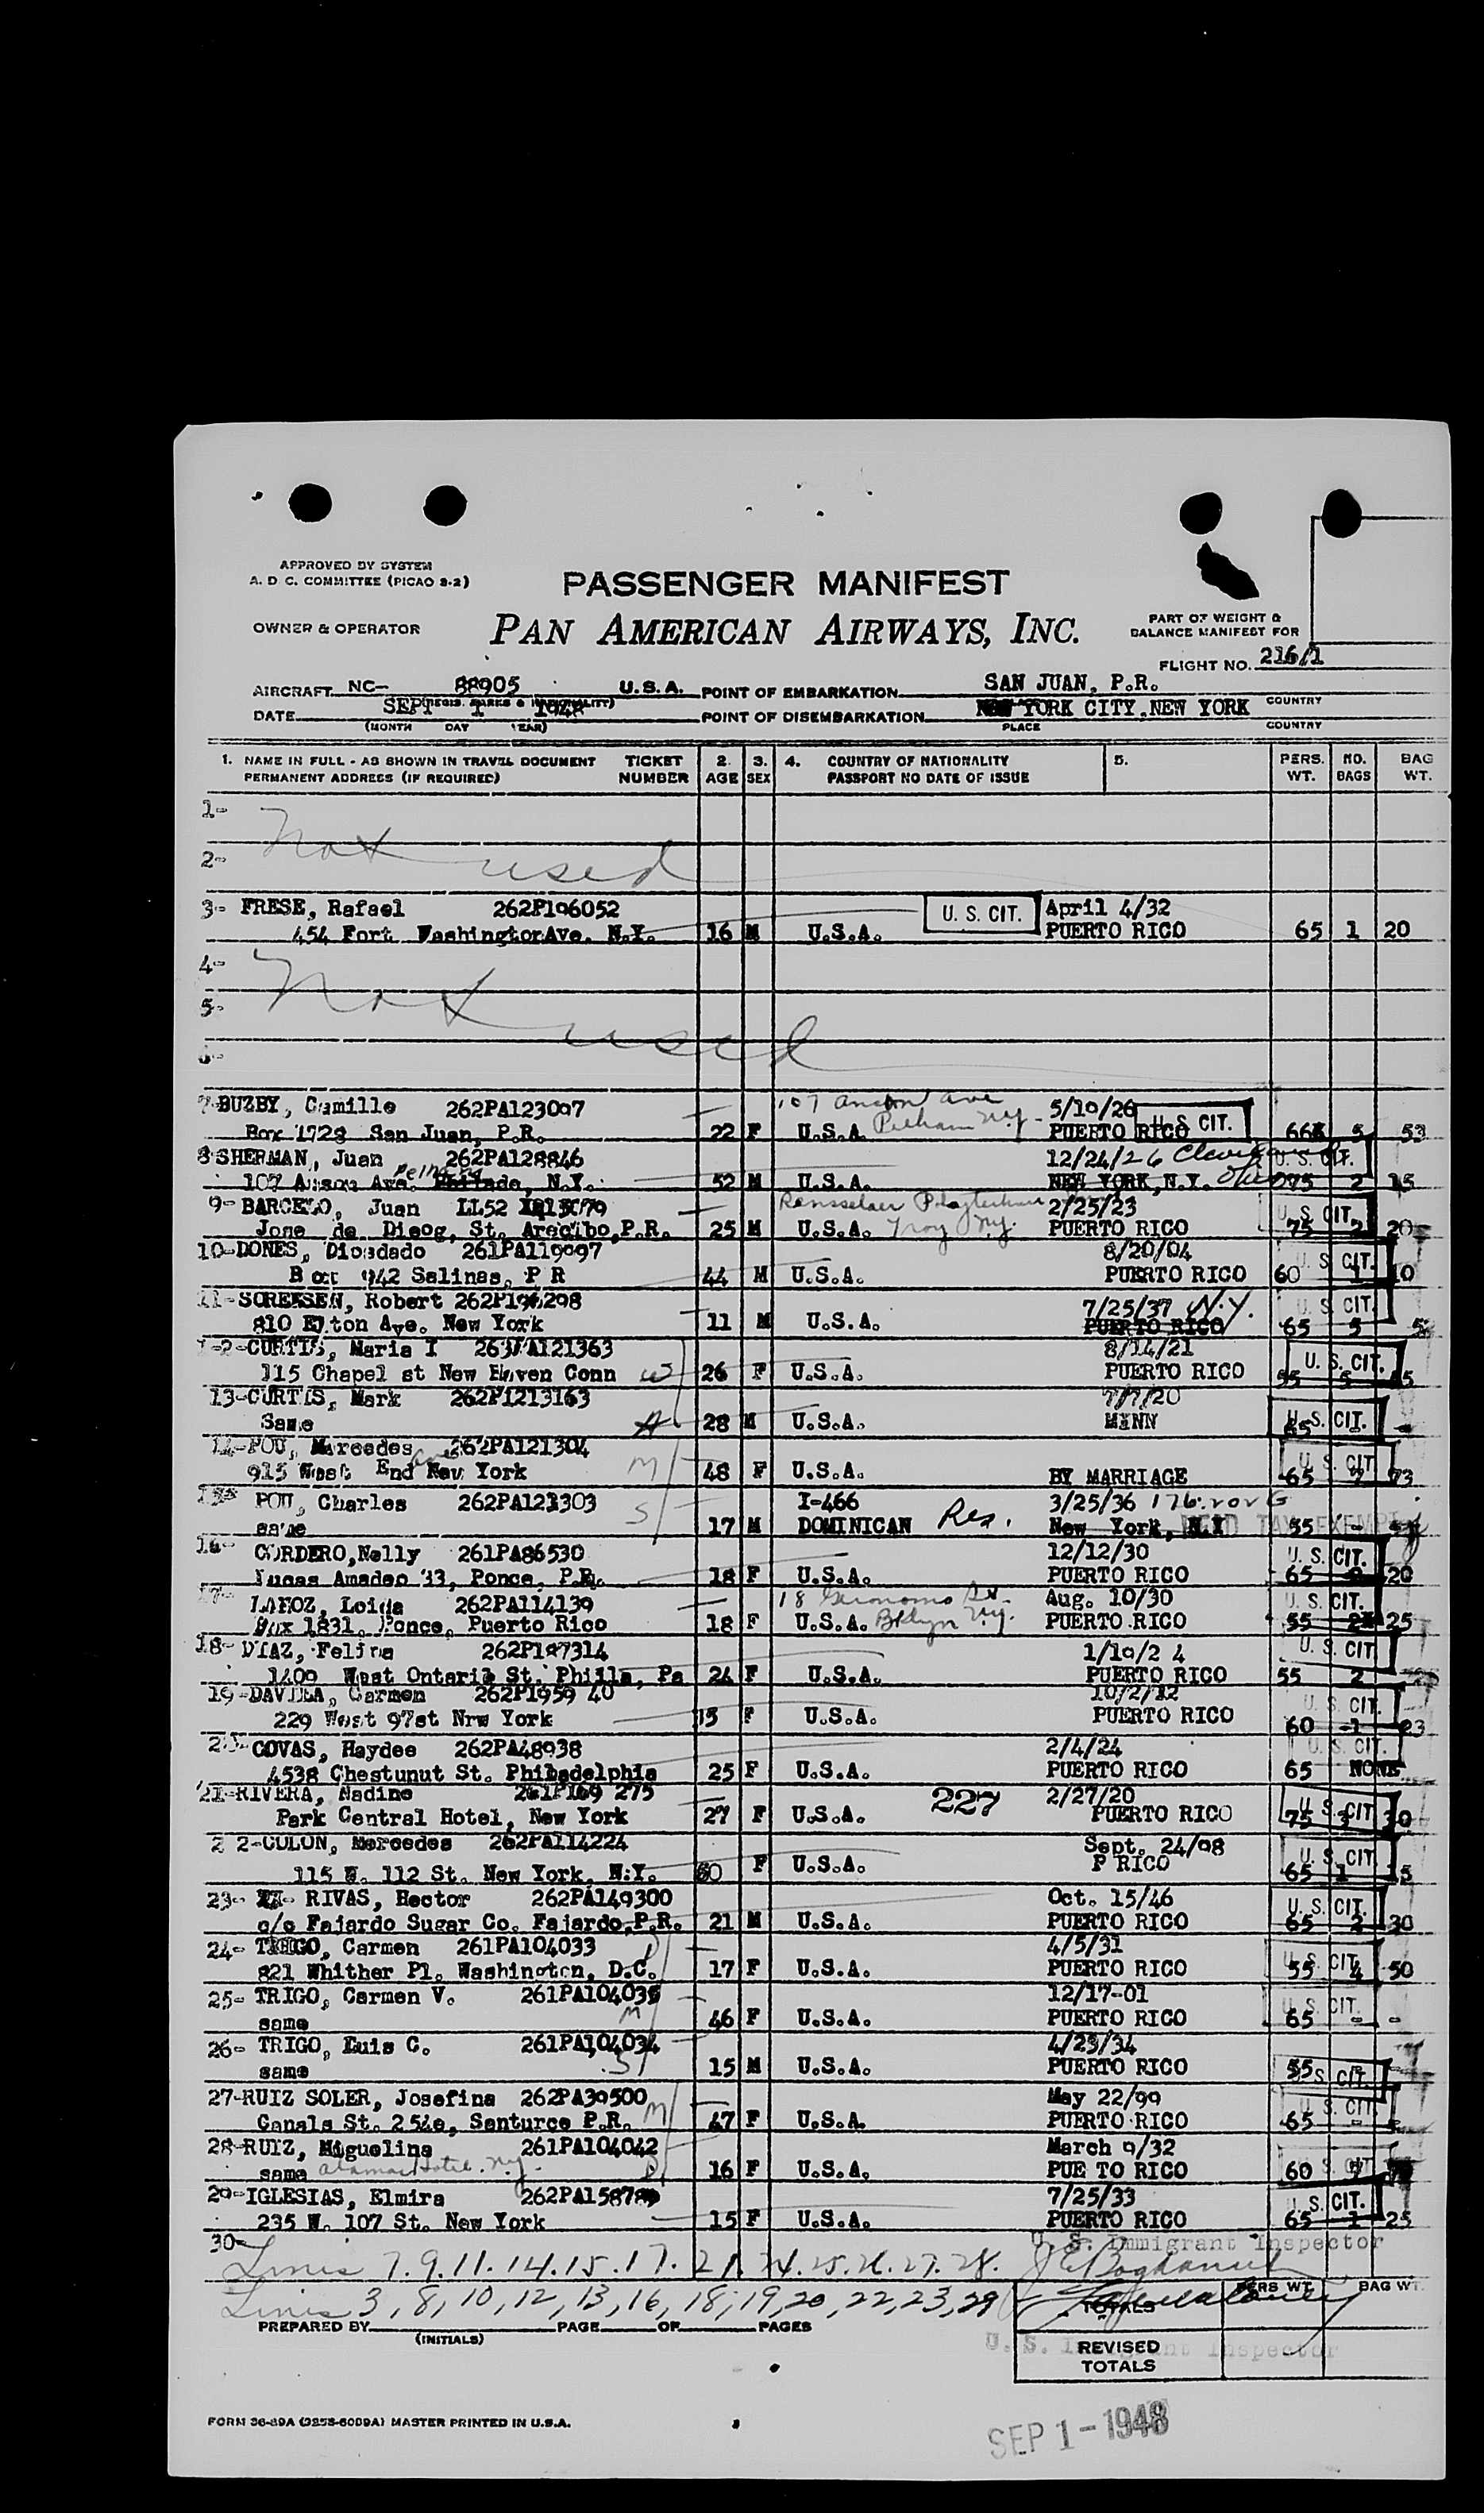 APPROVED BY SYSTEM
A. D C. COMMITTEE (PICAO 3-2)
PASSENGER MANIFEST
OWNER & OPERATOR
PAN AMERICAN AIRWAYS, INC.
PART OF WEIGHT &
BALANCE MANIFEST FOR
FLIGHT NO. 216/1
AIRCRAFT NC- 88905 U.S.A. POINT OF EMBARKATION SAN JUAN, P.R.
COUNTRY
DATE SEPT 1 1948 POINT OF DISEMBARKATION NEW YORK CITY.NEW YORK
(MONTH DAY YEAR) PLACE COUNTRY
1. NAME IN FULL - AS SHOWN IN TRAVEL DOCUMENT TICKET 2. 3. 4. COUNTRY OF NATIONALITY 5. PERS. NO. BAG
PERMANENT ADDRESS (IF REQUIRED) NUMBER AGE SEX PASSPORT NO DATE OF ISSUE WT. BAGS WT.
1-
Not used
2-
3- FRESE, Rafael 262P106052 U. S. CIT. April 4/32
454 Fort WashingtonAve. N.Y. 16 M U.S.A. PUERTO RICO 65 1 20
4-
Not used
5-
6-
7-BUZBY, Camille 262PA123007 107 Anson Ave 5/10/26 U.S CIT.
Box 1728 San Juan, P.R. 22 F U.S.A. Pelham N.Y. PUERTO RICO 5 53
8 SHERMAN, Juan 262PA128846 12/24/26 U. S. CIT.
107 Anson Ave. Pelham N.Y. 52 M U.S.A. NEW YORK,N.Y. 2 15
9- BARCELO, Juan LL52 Rensselaer 2/25/23 U.S CIT.
Jose de Dieog, St. Arecibo,P.R. 25 M U.S.A. Troy N.Y. PUERTO RICO 75 2 20
10-DONES, Diosdado 261PA119097 8/20/04 U. S CIT.
Box 942 Salinas, P R 44 M U.S.A. PUERTO RICO 60 1 10
11-SORENSEN, Robert 7/25/37 N.Y. U. S CIT.
810 Ave. New York 11 M U.S.A. PUERTO RICO 65 5
12-CURTIS, Maria I 263PA121363 8/14/21
115 Chapel st New Haven Conn W 26 F U.S.A. PUERTO RICO U. S. CIT. 55 5
13-CURTIS, Mark 262P1213163 7/7/20
Same 28 M U.S.A. MINN U.S. CIT. 65 - -
14-POU, Mercedes 262PA121304 U. S CIT
915 West End Ave New York M 48 F U.S.A. BY MARRIAGE 65 73
15- POU, Charles 262PA121303 S I-466 3/25/36
same 17 M DOMINICAN Res. New York, N.Y TAX EXEMPT 55 -
16- CORDERO,Nelly 261PA86530 12/12/30 U. S. CIT.
Lucas Amadeo 33, Ponce, P.R. 18 F U.S.A. PUERTO RICO 65 20
17- Loida 262PA114139 18 Geronomo St. Aug. 10/30 U. S. CIT.
Box 1831, Ponce, Puerto Rico 18 F U.S.A. Bklyn N.Y. PUERTO RICO 55 25
18- DIAZ, Felina 262P107314 1/10/2 4 U. S. CIT
1400 West Ontario St. Philla, Pa 24 F U.S.A. PUERTO RICO 55 2
19-DAVILA, Carmen 262P1959 40 U. S CIT.
229 West 97st Nrw York 15 F U.S.A. PUERTO RICO 60 1 23
20- COVAS, Haydee 262PA48938 2/4/24 U. S. CIT.
4538 Chestunut St. Philadelphia 25 F U.S.A. PUERTO RICO 65 NONE
21-RIVERA, Nadine 261P169 275 227 2/27/20
Park Central Hotel, New York 27 F U.S.A. PUERTO RICO U. S CIT. 75 3 30
2 2-COLON, Mercedes 262PA114224 Sept. 24/08 U. S CIT
115 W. 112 St. New York, N.Y. 60 F U.S.A. P RICO 65 1 15
23- RIVAS, Hector 262PA149300 Oct. 15/46 U. S. CIT.
c/o Fajardo Sugar Co. Fajardo,P.R. 21 M U.S.A. PUERTO RICO 65 2 30
24- TRIGO, Carmen 261PA104033 D 4/5/31
821 Whither Pl. Washington, D.C. 17 F U.S.A. PUERTO RICO U.S. CIT. 55 4 50
25- TRIGO, Carmen V. 261PA104035 M 12/17-01 U. S. CIT.
same 46 F U.S.A. PUERTO RICO 65 - -
26- TRIGO, Luis C. 261PA104034 S 4/23/34
same 15 M U.S.A. PUERTO RICO 55 U.S CIT.
27-RUIZ SOLER, Josefina 262PA30500 M May 22/99 U. S. CIT
Canals St. 254e, Santurce P.R. 47 F U.S.A. PUERTO RICO 65 -
28-RUIZ, Miguelina 261PA104042 D March 9/32
same Alamac Hotel. N.Y. 16 F U.S.A. PUE TO RICO 60 U.S. CIT
29-IGLESIAS, Elmira 7/25/33 U.S. CIT.
235 W. 107 St. New York 15 F U.S.A. PUERTO RICO 65 1 25
30- U. S. Immigrant Inspector
Lines 7.9.11.14.15.17.21.24.25.26.27.28.
Lines 3, 8, 10, 12, 13, 16, 18, 19, 20, 22, 23, 29
PERS WT. BAG WT.
TOTALS
PREPARED BY PAGE OF PAGES
(INITIALS)
U. S. Immigrant Inspector
REVISED
TOTALS
FORM 36-89A (3253-6009A) MASTER PRINTED IN U.S.A.
SEP 1-1948